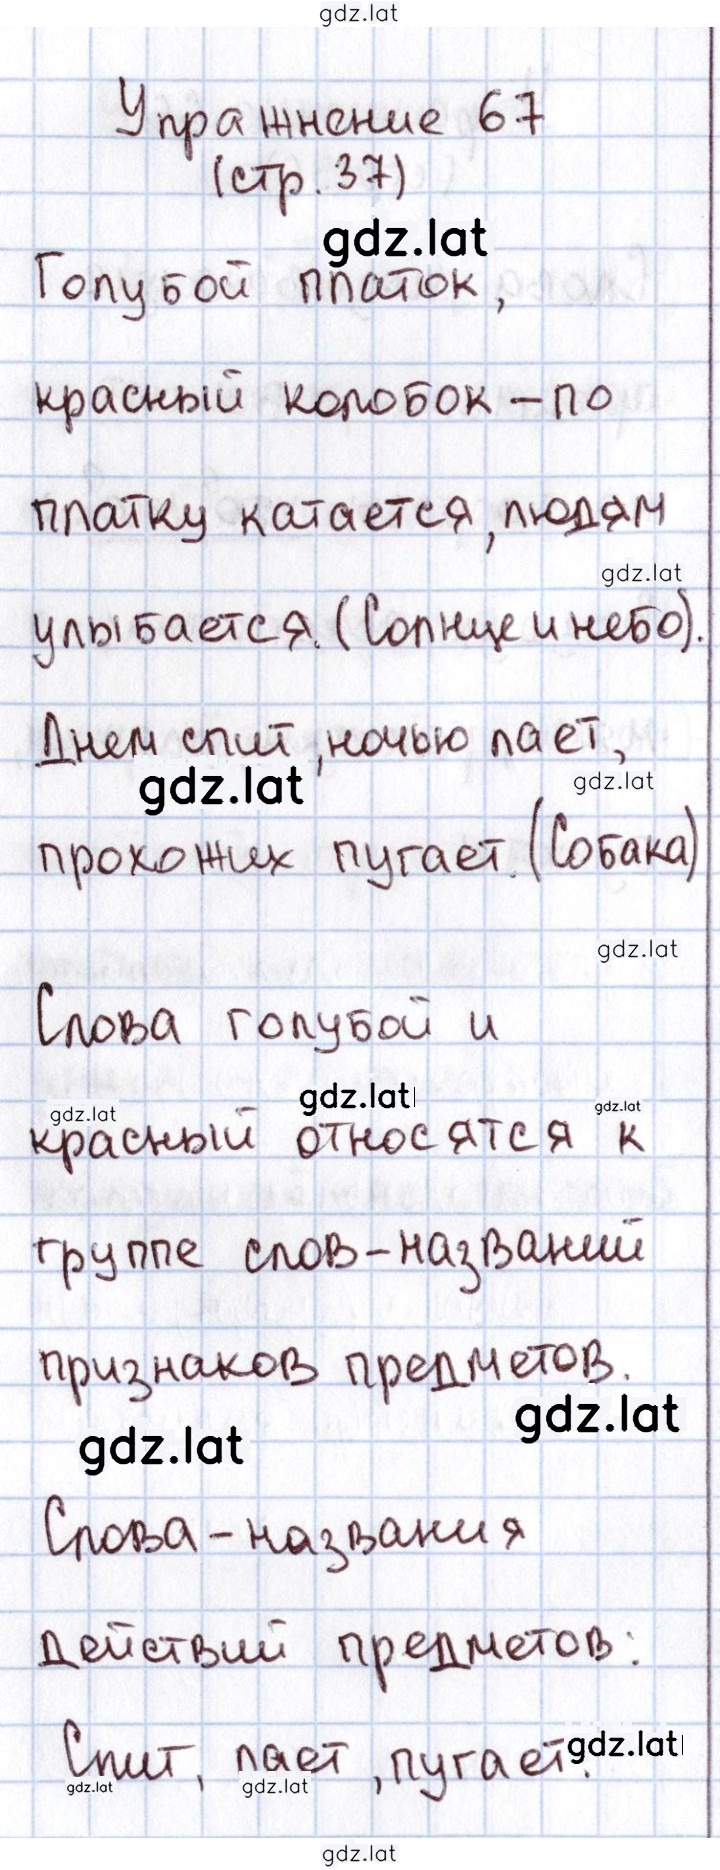 gdz.lat
Упражнение 67
(стр. 37)
gdz.lat
Голубой платок,
красный колобок – по
платку катается, людям
gdz.lat
улыбается. (Солнце и небо).
Днем спит, ночью лает,
gdz.lat
gdz.lat
прохожих пугает. (Собака)
gdz.lat
Слова голубой и
gdz.lat
gdz.lat
gdz.lat
красный относятся к
группе слов-названий
признаков предметов.
gdz.lat
gdz.lat
Слова-названия
действий предметов:
Спит, лает, пугает.
gdz.lat
gdz.lat
gdz.lat
gdz.lat